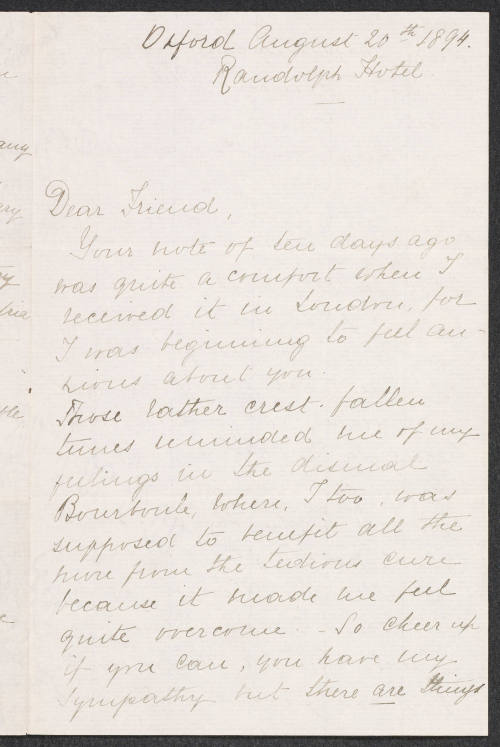 Oxford August 20th 1894.
Randolph Hotel
Dear Friend,
Your note of ten days ago
was quite a comfort when I
received it in London, for
I was beginning to feel an-
xious about you.
Those rather crest-fallen
tunes reminded me of my
feelings in the dismal
Bourboule, where, I too, was
supposed to benefit all the
more from the tedious cure
because it made me feel
quite overcome. - So cheer up
if you can, you have my
sympathy but there are things